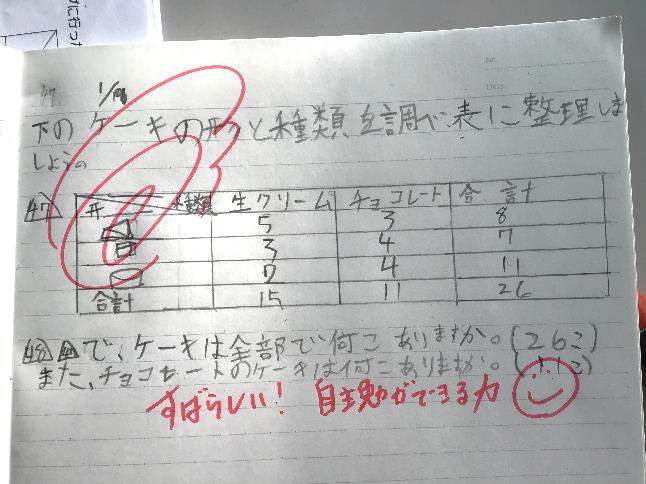 に行った
No.
Date
47 1/19
下のケーキの形と種類を調べ表に整理しま
しょう。
47 形 種類 生クリーム チョコレート 合計
5 3 8
3 4 7
7 4 11
合計 15 11 26
48 47で、ケーキは全部で何こありますか。(26こ)
また、チョコレートのケーキは何こありますか。(11こ)
すばらしい! 自主勉ができる力